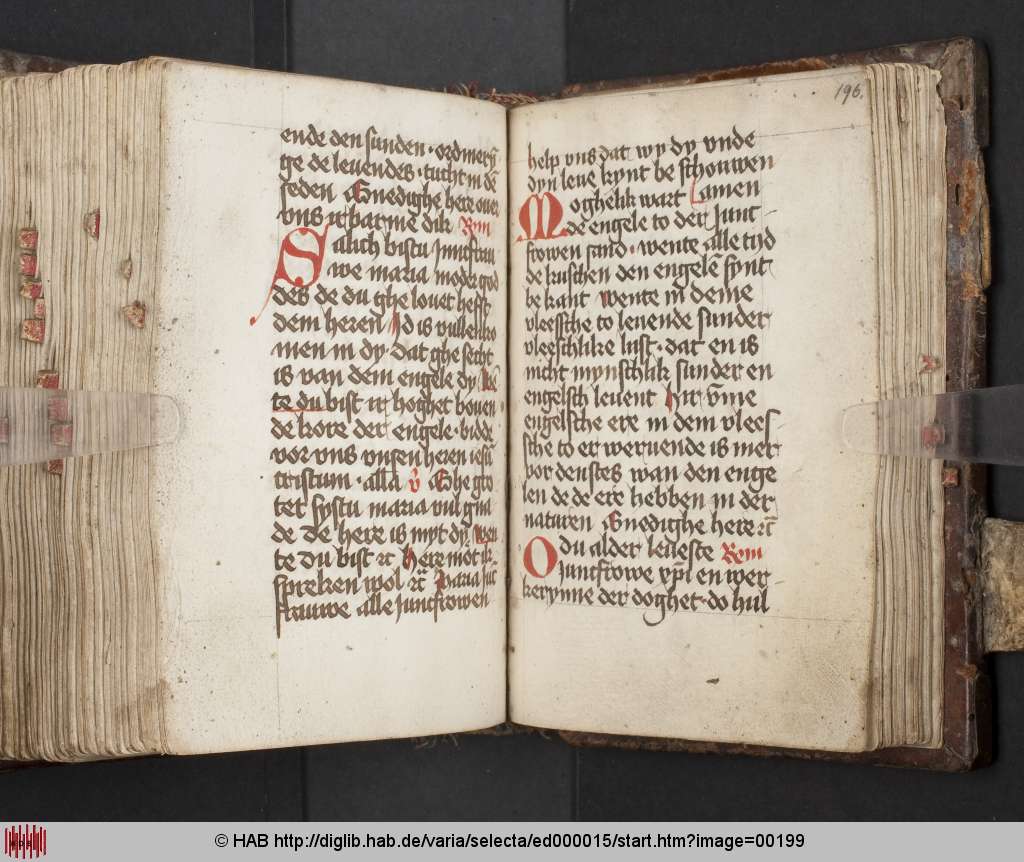 ende den sunden · ordinerẏ
ge de levendes · tucht in dē
seden Gnedighe here over
uns irbarme dik Rm̄
Salich bistu Juncfrau
we maria moder god
des de du ghe louet hest
dem heren Id is vullenko
men in dy · dat ghe secht
is van dem engele dy
te du bist ir hoghet boven
de kore der engele · bidde
vor uns unsen heren iesū
cristum · allā v̄ Ghe gro
tet systu maria vul gna
de De here is myt dy · wen
te du bist ⁊c here mot ik
spreken wol ⁊c Maria juc
frauwe alle Juncfrowen
196.
help uns dat wy dy unde
dyn leve kynt be schouwen
Moghelik wart Lamen
de engele to der Junc
frowen sand · wente alle tijd
de kuschen den engelē synt
be kant wente in deme
vleessche to levende sunder
vleeschlike lust · dat en is
nicht mynschlik sunder en
engelsch levent Hir ūme
engelsche ere in dem vlees
sche to er wervende is mer
vor denstes wan den enge
len de de ere hebben in der
naturen Gnedighe here ⁊c̄
O du alder leveste Rm̄
Juncfrowe xp̄i en wer
kerynne der doghet · do hul
© HAB http://diglib.hab.de/varia/selecta/ed000015/start.htm?image=00199